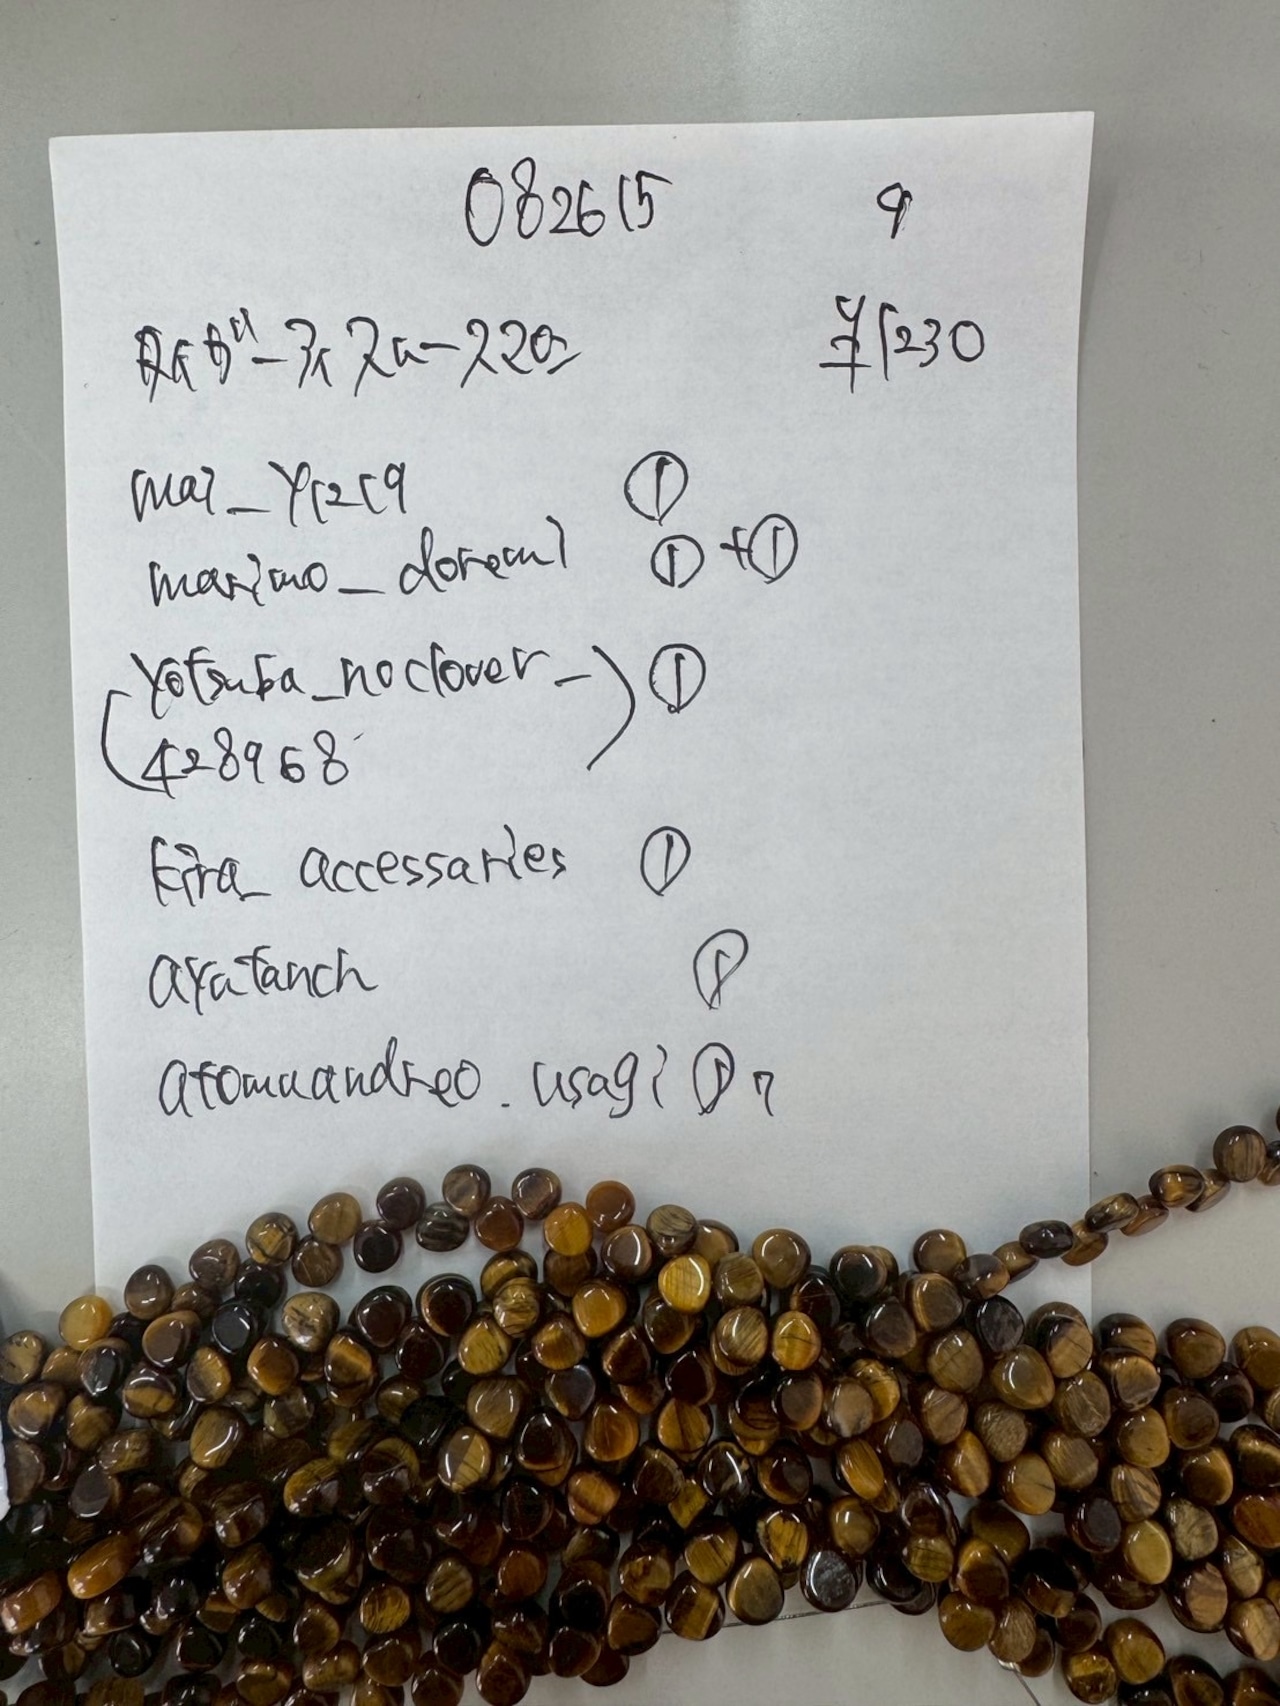 082615 9
¥1230
mai_y1219
marimo_doremi ① ①+①
yotsuba_noclover_ ①
428968
kira_accessaries ①
ayatanch ①
atomuandreo.usagi ①